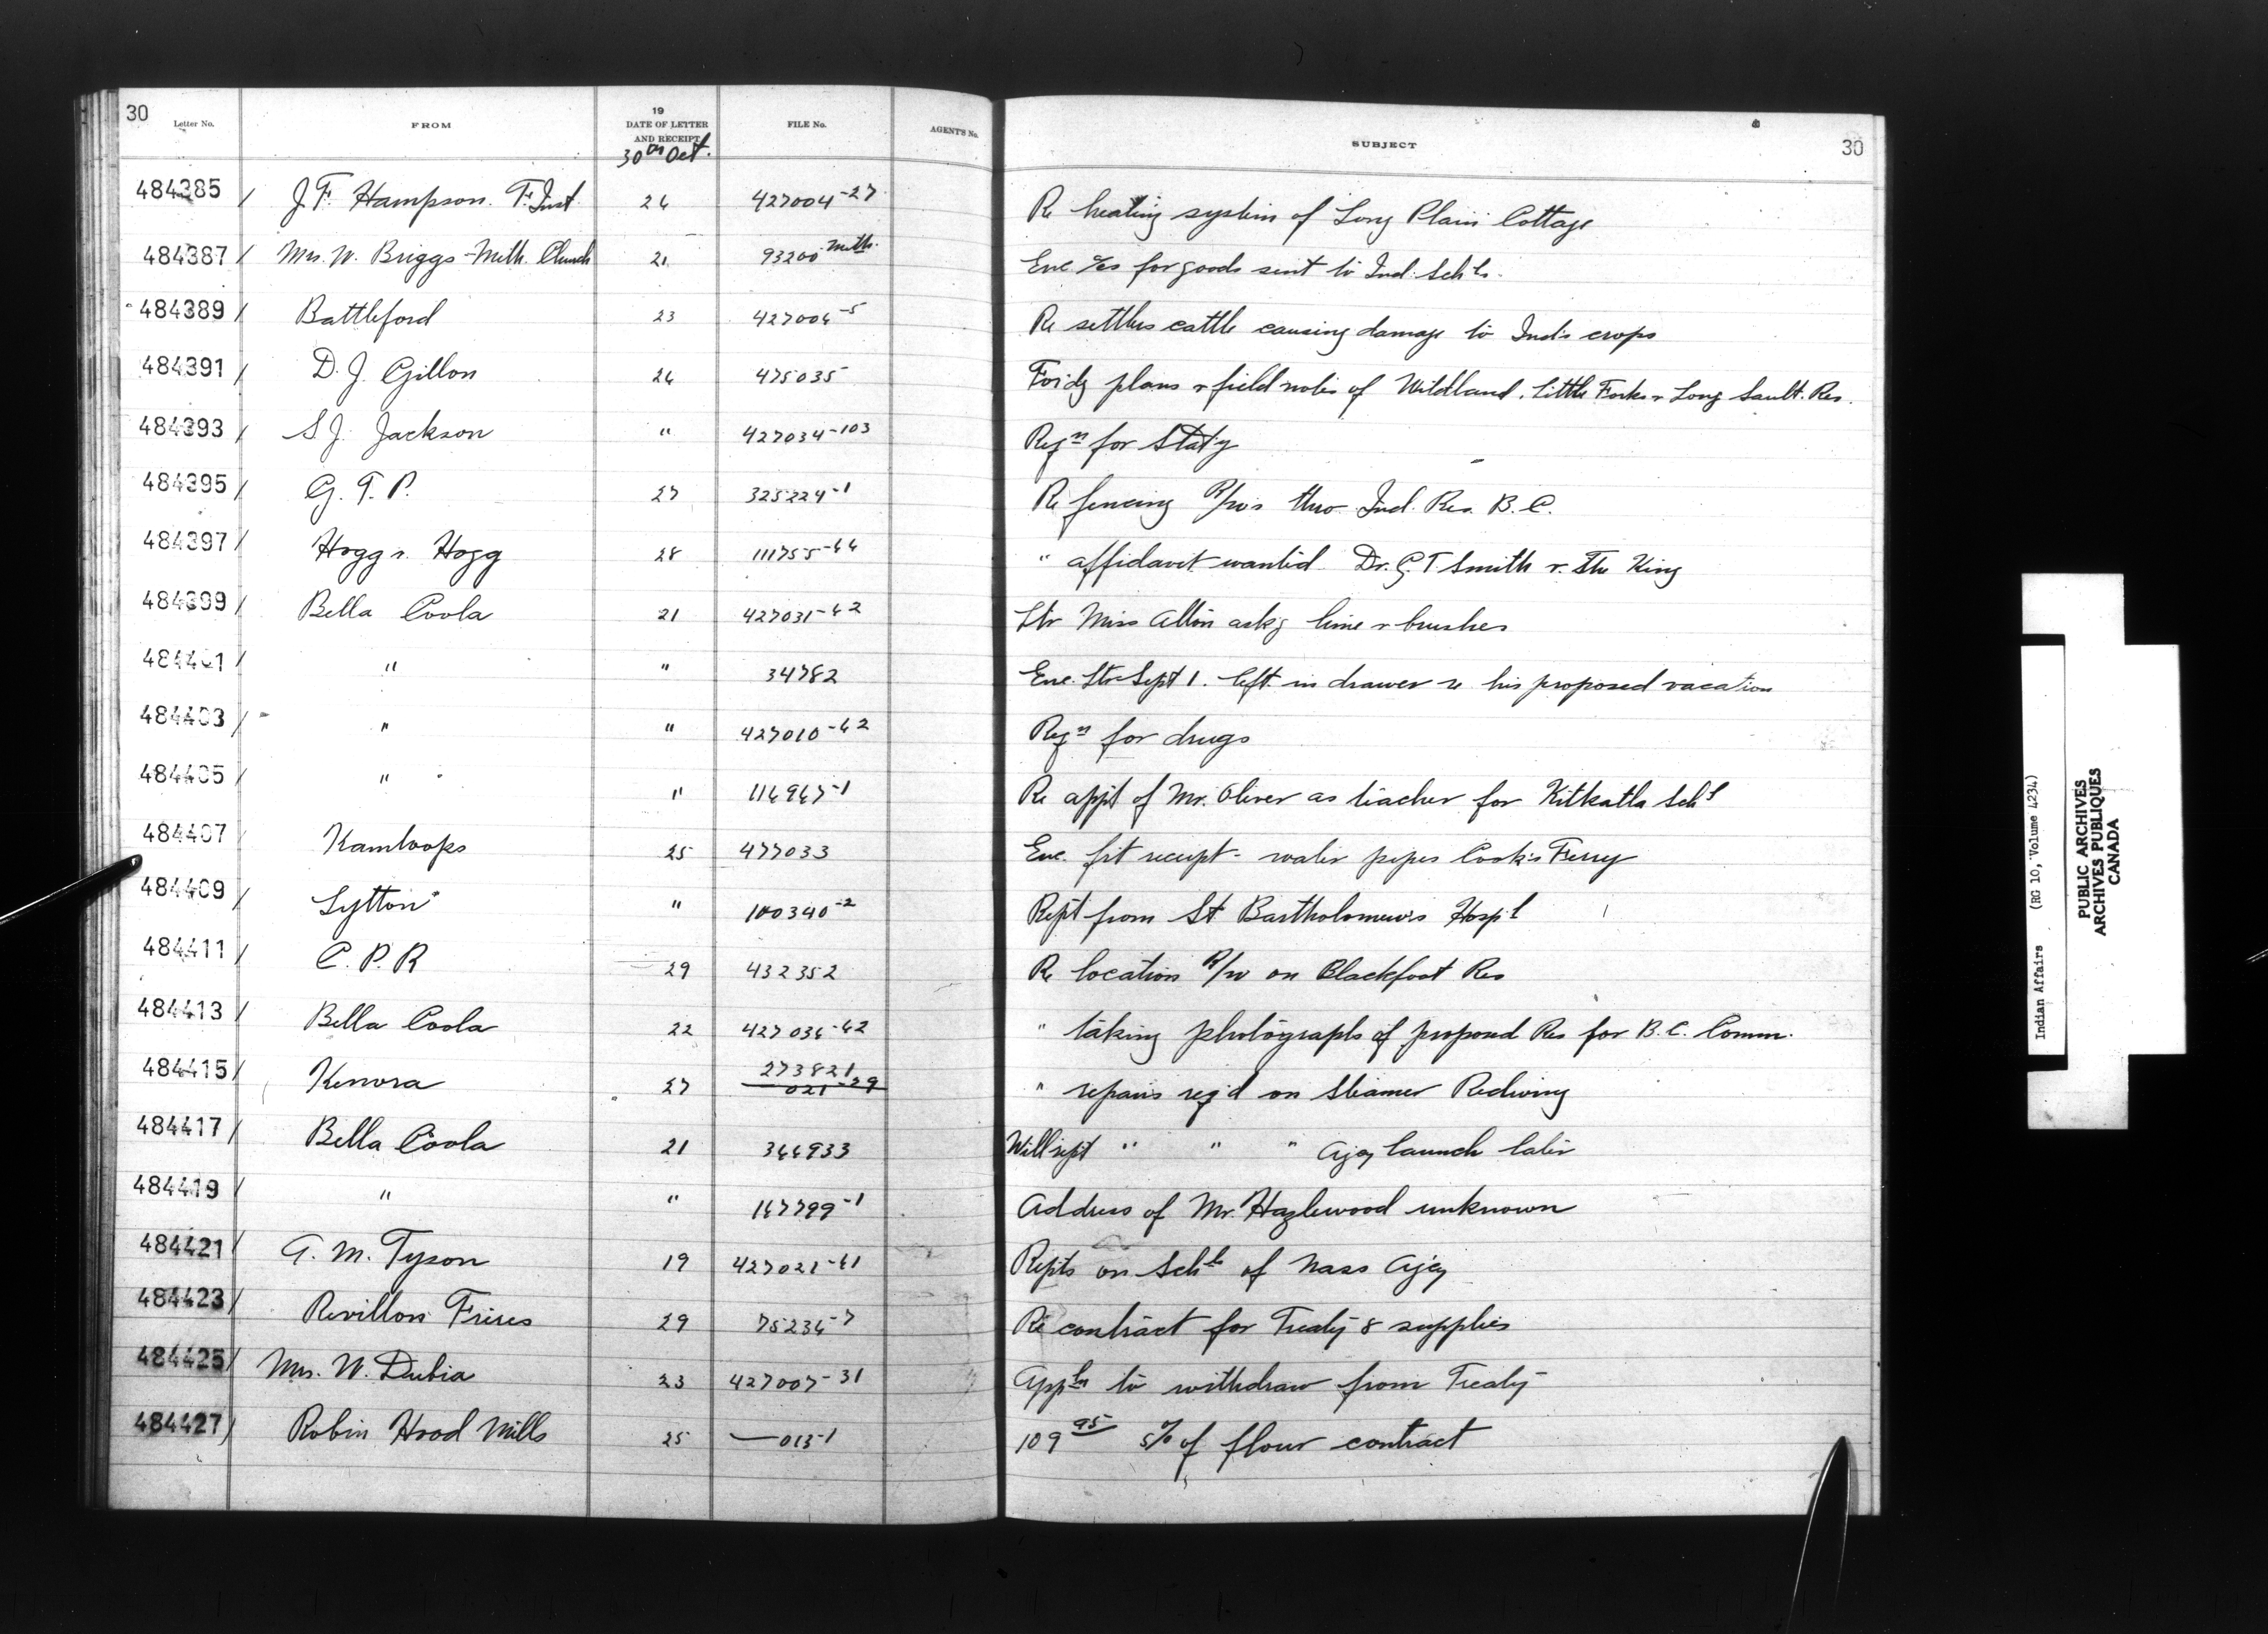 30
Letter No. FROM 19 DATE OF LETTER AND RECEIPT FILE No. AGENT'S No. SUBJECT 30
30th Oct.
484385 / J. F. Hampson. F. Inst. 26 427004-27 Re heating system of Long Plain Cottage
484387 / Mrs. W. Briggs - Meth. Church 21 93200 Meth. Enc. a/cs for goods sent to Ind. Schls.
484389 / Battleford 23 427006-5 Re settlers cattle causing damage to Inds crops
484391 / D. J. Gillon 26 475035 Fordg plans & field notes of Wildland, Little Forks & Long Sault. Res.
484393 / S J. Jackson " 427034-103 Reqn for Staty
484395 / G. T. P. 27 325224-1 Re fencing R/w's thro Ind. Res. B. C.
484397 / Hogg & Hogg 28 111755-66 " affidavit wanted Dr. G. T Smith v. The King
484399 / Bella Coola 21 427031-62 Ltr Miss Alton askg lime & brushes
484401 / " " 34782 Enc. Ltr Sept 1. left in drawer re his proposed vacation
484403 / " " 427010-62 Reqn for drugs
484405 / " " 116967-1 Re appt of Mr. Oliver as teacher for Kitkatla Schl
484407 / Kamloops 25 477033 Enc. frt receipt - water pipes Cook's Ferry
484409 / Lytton " 100340-2 Rept from St Bartholomew's Hospl
484411 / C. P. R 29 432352 Re location R/w on Blackfoot Res
484413 / Bella Coola 22 427036-62 " taking photographs of proposed Res for B. C. Comm.
484415 / Kenora 27 273821 021-29 " repairs reqd on steamer Redwing
484417 / Bella Coola 21 366933 Will rept " " " Agcy launch later
484419 / " " 167799-1 Address of Mr. Hazlewood unknown
484421 / A. M. Tyson 19 427021-61 Repts on Schls of Nass Agcy
484423 / Revillon Freres 29 75236-7 Re contract for Treaty 8 supplies
484425 / Mrs. W. Dubia 23 427007-31 Appln to withdraw from Treaty
484427 / Robin Hood Mills 25 — 015-1 109 95 5% of flour contract
Indian Affairs (RG 10, Volume 4234)
PUBLIC ARCHIVES
ARCHIVES PUBLIQUES
CANADA